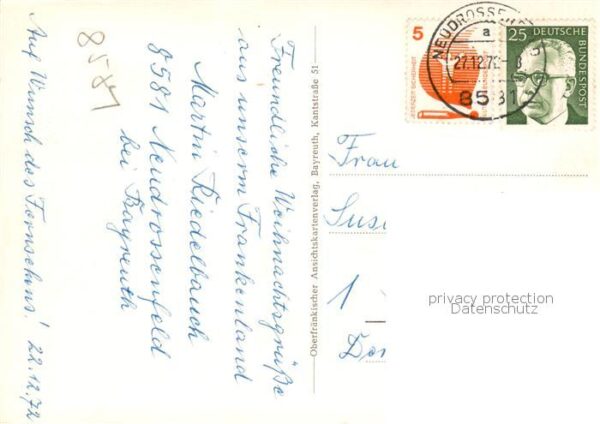 8581
Freundliche Weihnachtsgrüße
aus unserm Frankenland
Martin Riedelbauch
8581 Neudrossenfeld
bei Bayreuth
Auf Wunsch des Fernsehens! 22.12.72
Oberfränkischer Ansichtskartenverlag, Bayreuth, Kantstraße 51
5
JEDERZEIT SICHERHEIT
25
DEUTSCHE
BUNDESPOST
NEUDROSSENF
a
27.12.72
8581
Frau
Sus
1
Dor
privacy protection
Datenschutz